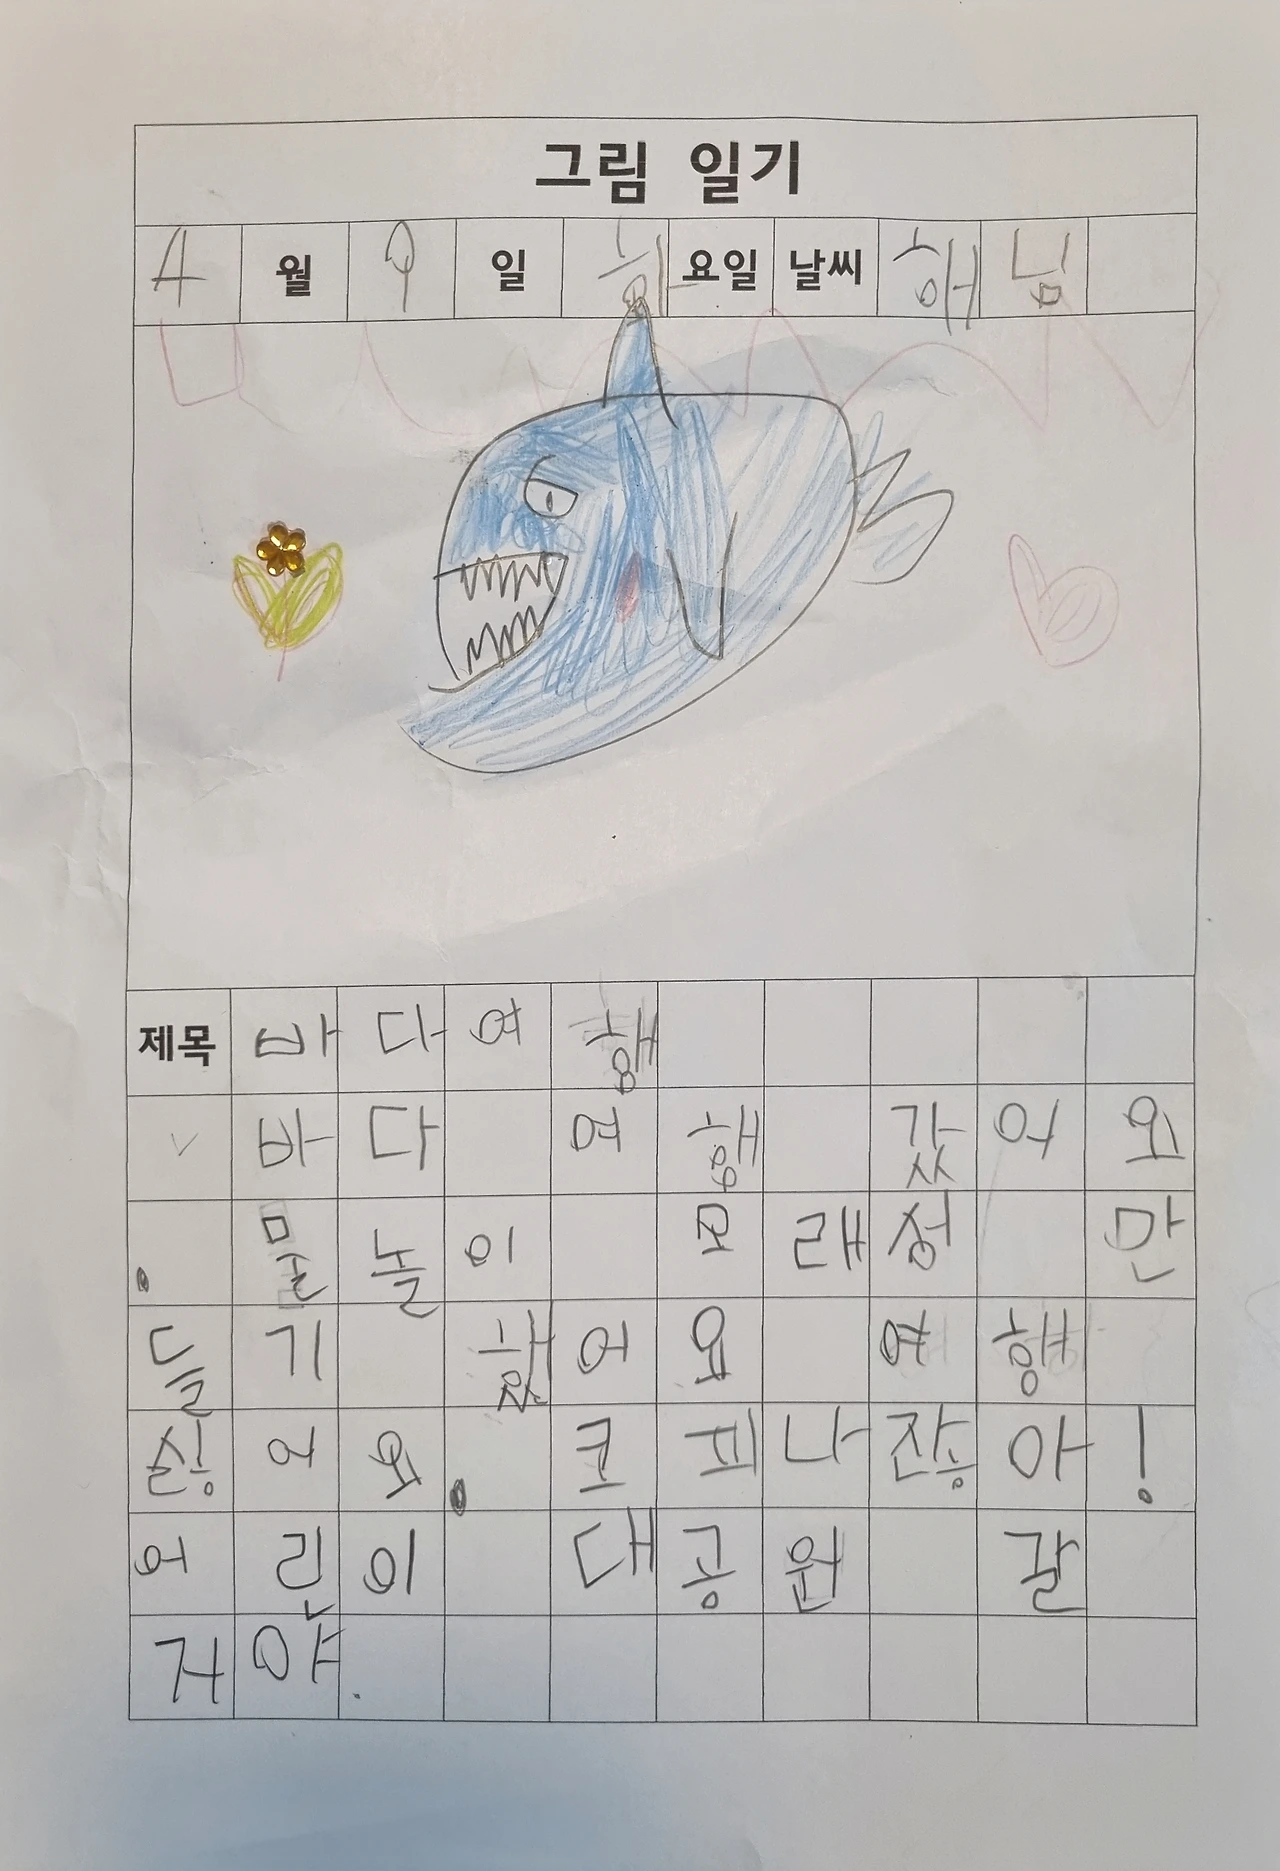 그림 일기
4 월 9 일 요일 날씨 해님
제목 바다여행
바다 여행 갔어요
. 물놀이 모래성 만
들기 했어요 여행
싫어요. 코피나잖아!
어린이 대공원 갈
거야.